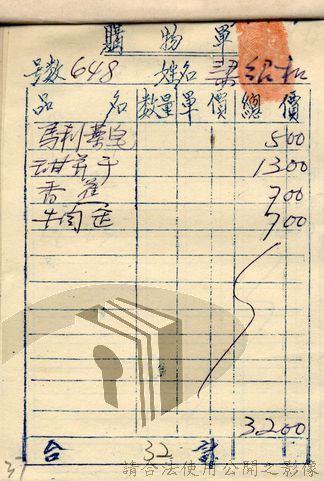 購物單
号數 648 姓名 梁紹和
品名 數量 單價 總價
馬利葉皂 500
甜餅干 1300
香 700
牛肉 700
3200
合 32 計
37
請合法使用公開之影像